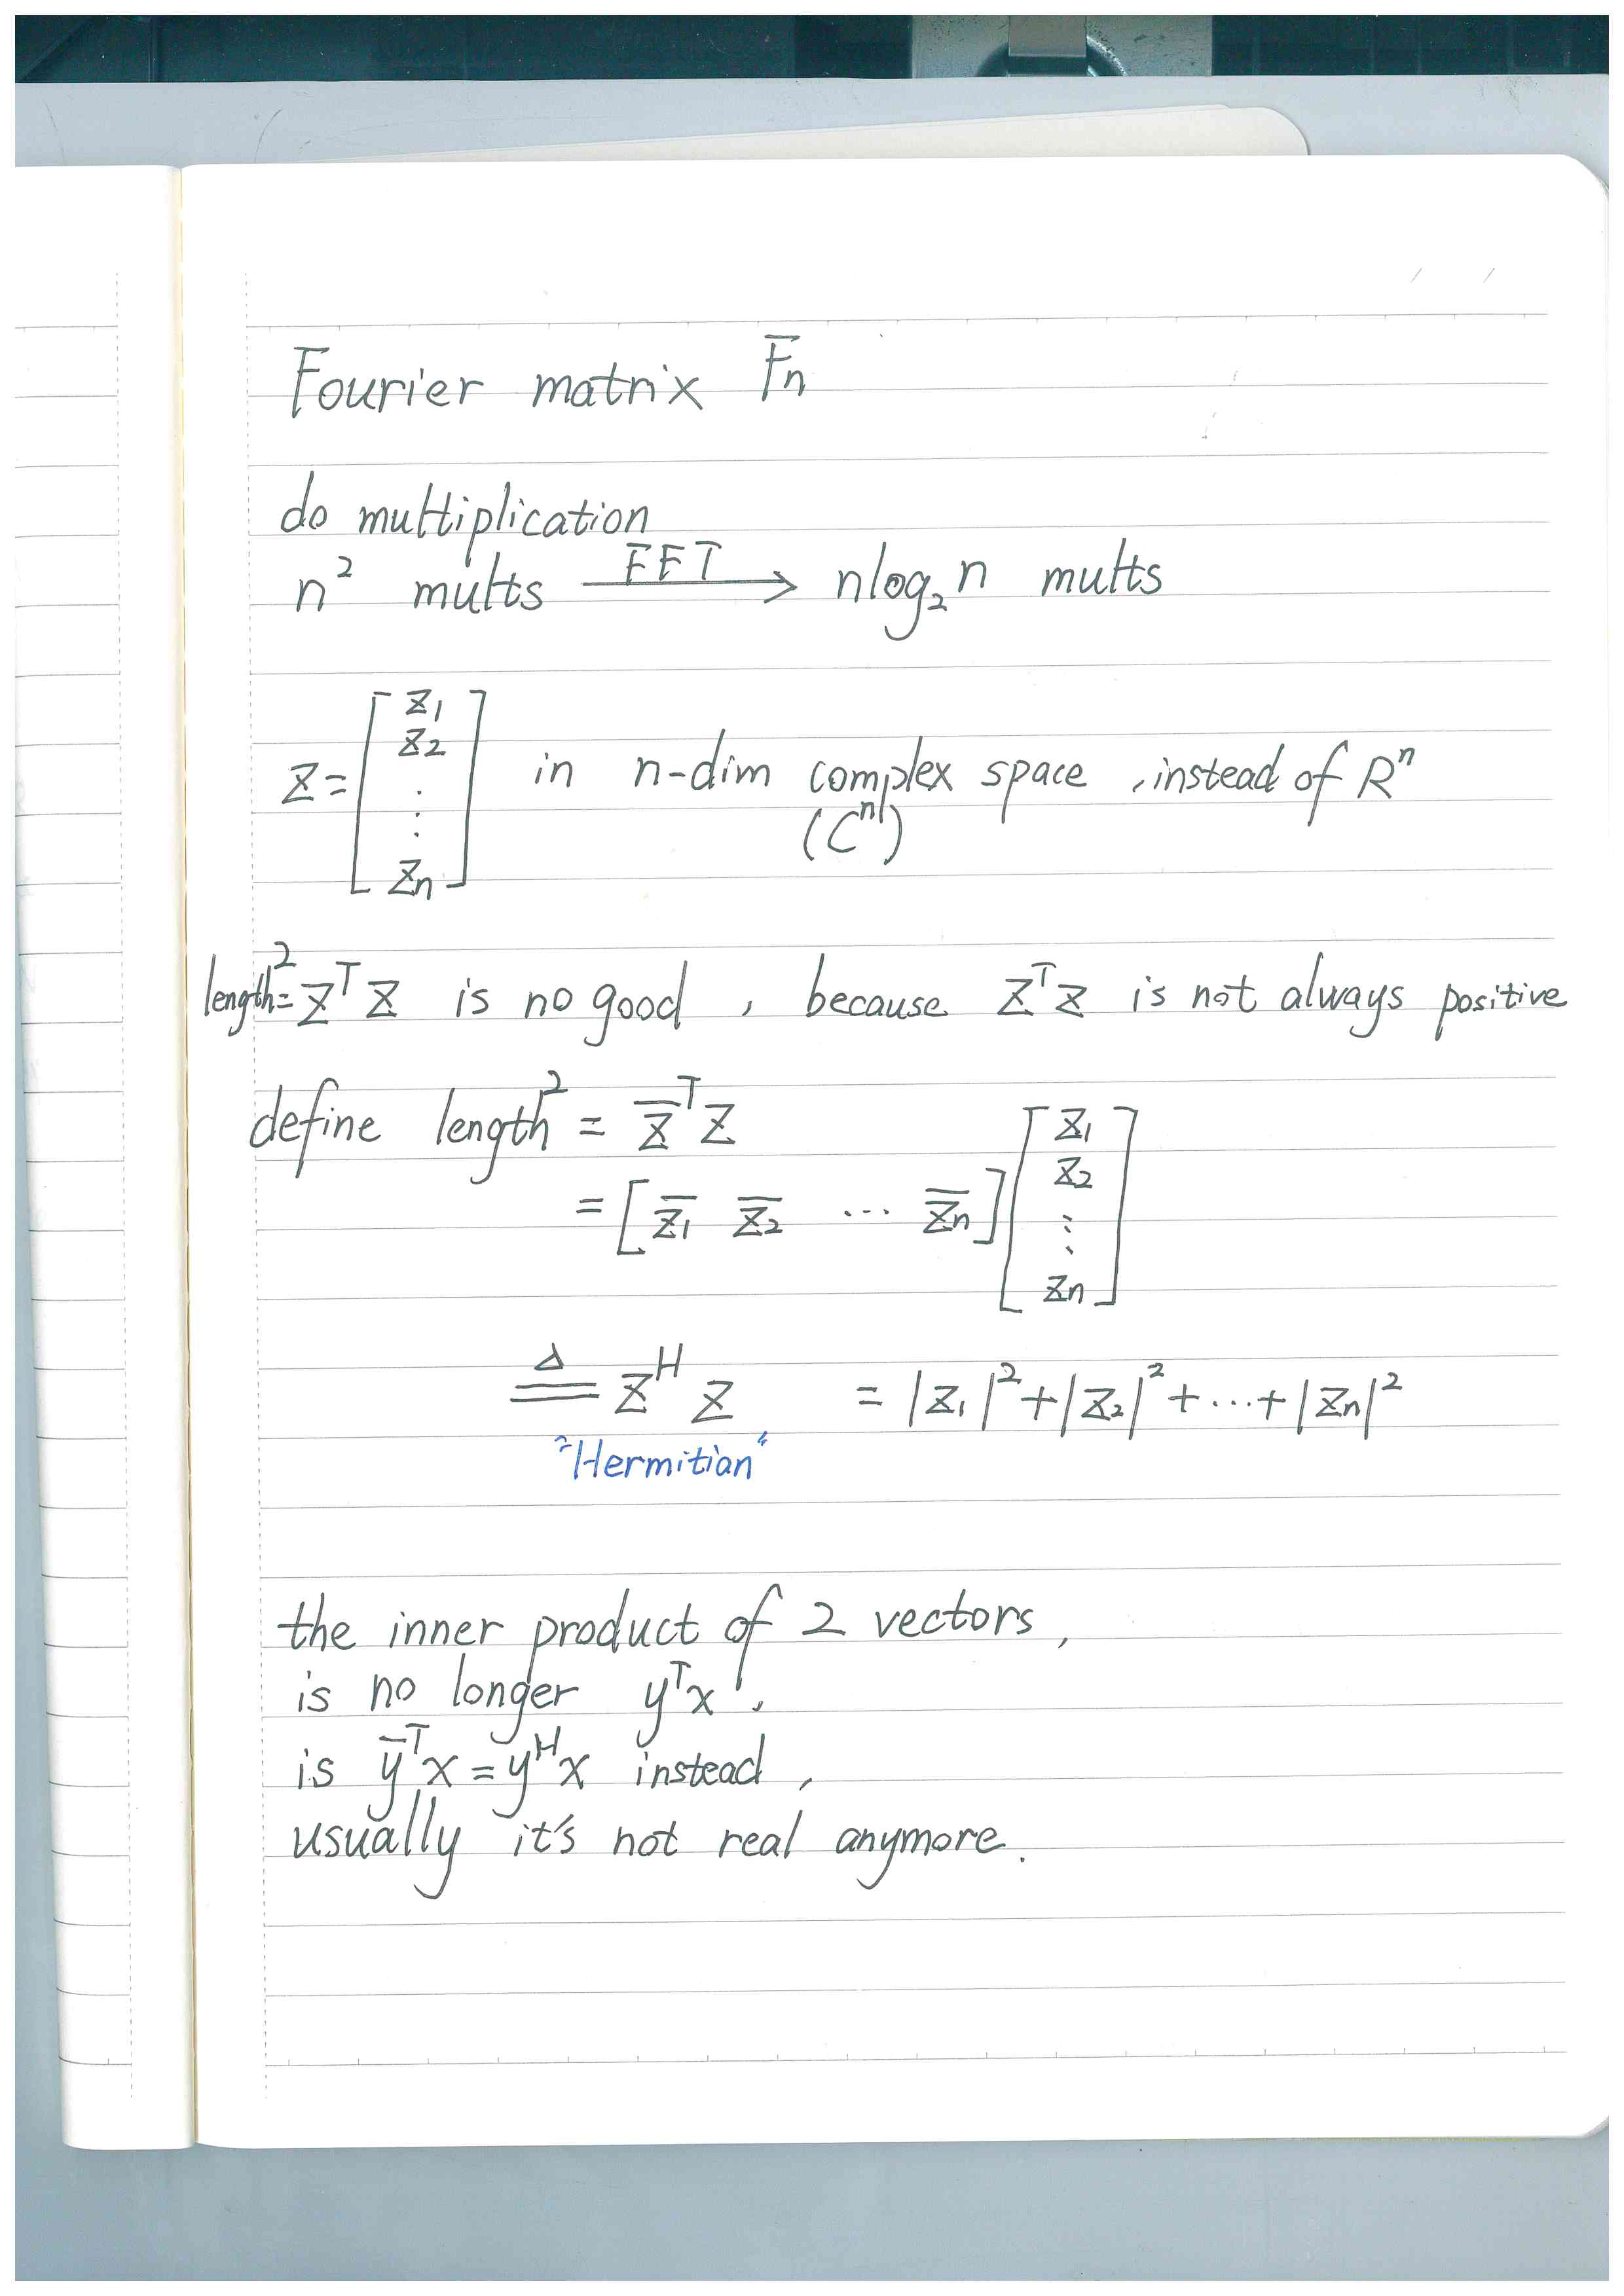 Fourier matrix Fn
do multiplication
n² mults FFT → nlog₂n mults
z = [z₁ z₂ ⋮ zₙ] in n-dim complex space, instead of Rⁿ
(Cⁿ)
length² = zᵀz is no good, because zᵀz is not always positive
define length² = z̄ᵀz
= [z̄₁ z̄₂ ... z̄ₙ] [z₁ z₂ ⋮ zₙ]
≜ zᴴz = |z₁|²+|z₂|²+...+|zₙ|²
"Hermitian"
the inner product of 2 vectors,
is no longer yᵀx,
is ȳᵀx = yᴴx instead,
usually it's not real anymore.